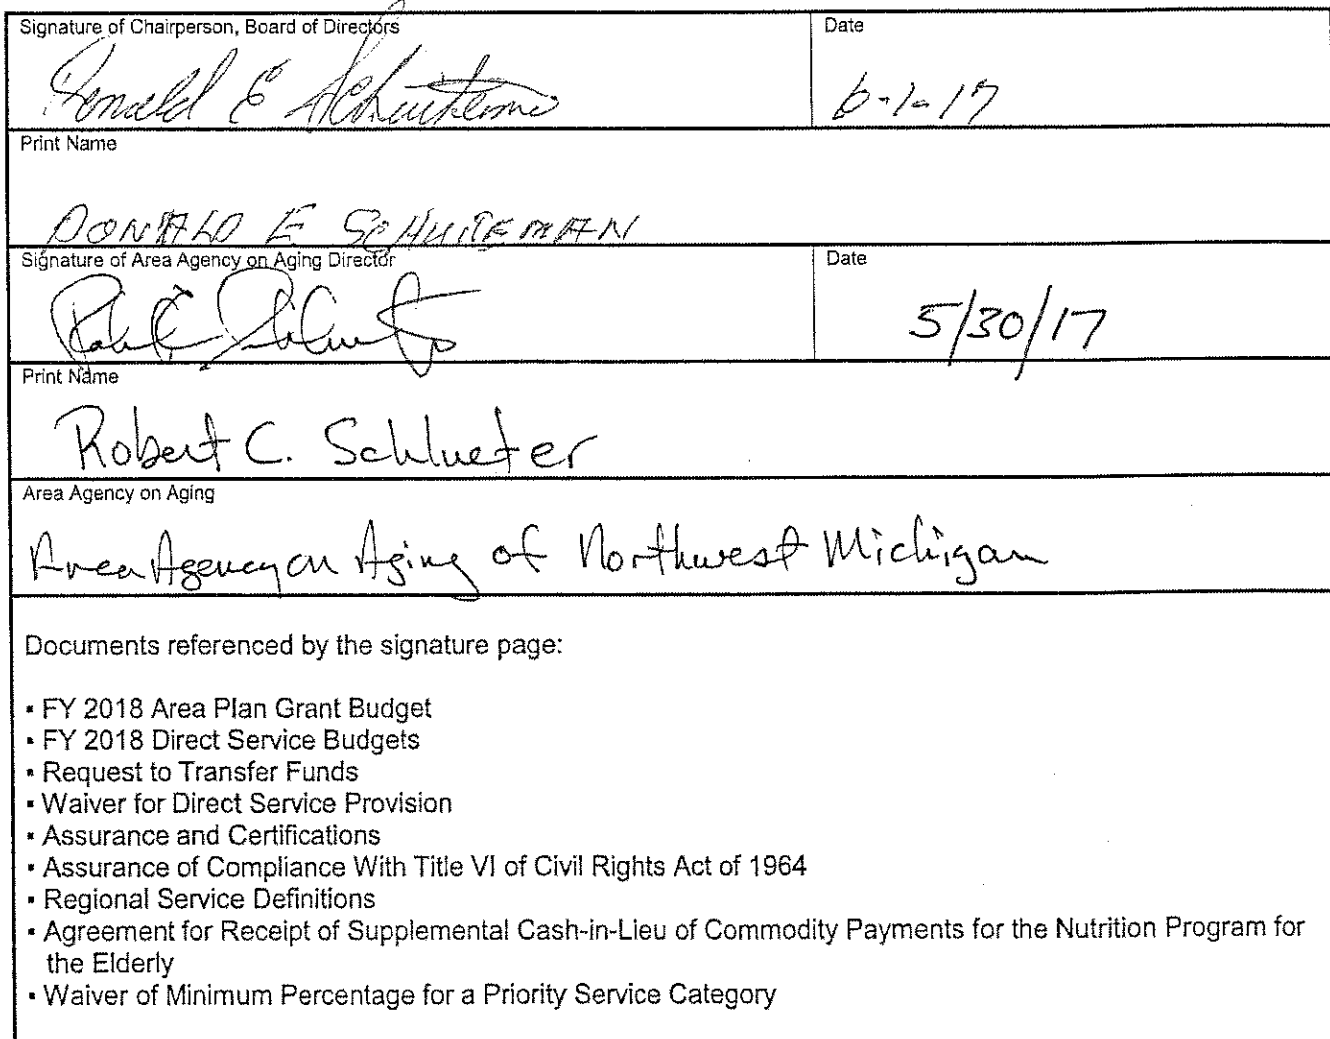 Signature of Chairperson, Board of Directors Date
Donald E Schuiteman 6-1-17
Print Name
DONALD E SCHUITEMAN
Signature of Area Agency on Aging Director Date
Robert C. Schlueter 5/30/17
Print Name
Robert C. Schlueter
Area Agency on Aging
Area Agency on Aging of Northwest Michigan
Documents referenced by the signature page:
▪ FY 2018 Area Plan Grant Budget
▪ FY 2018 Direct Service Budgets
▪ Request to Transfer Funds
▪ Waiver for Direct Service Provision
▪ Assurance and Certifications
▪ Assurance of Compliance With Title VI of Civil Rights Act of 1964
▪ Regional Service Definitions
▪ Agreement for Receipt of Supplemental Cash-in-Lieu of Commodity Payments for the Nutrition Program for
the Elderly
▪ Waiver of Minimum Percentage for a Priority Service Category